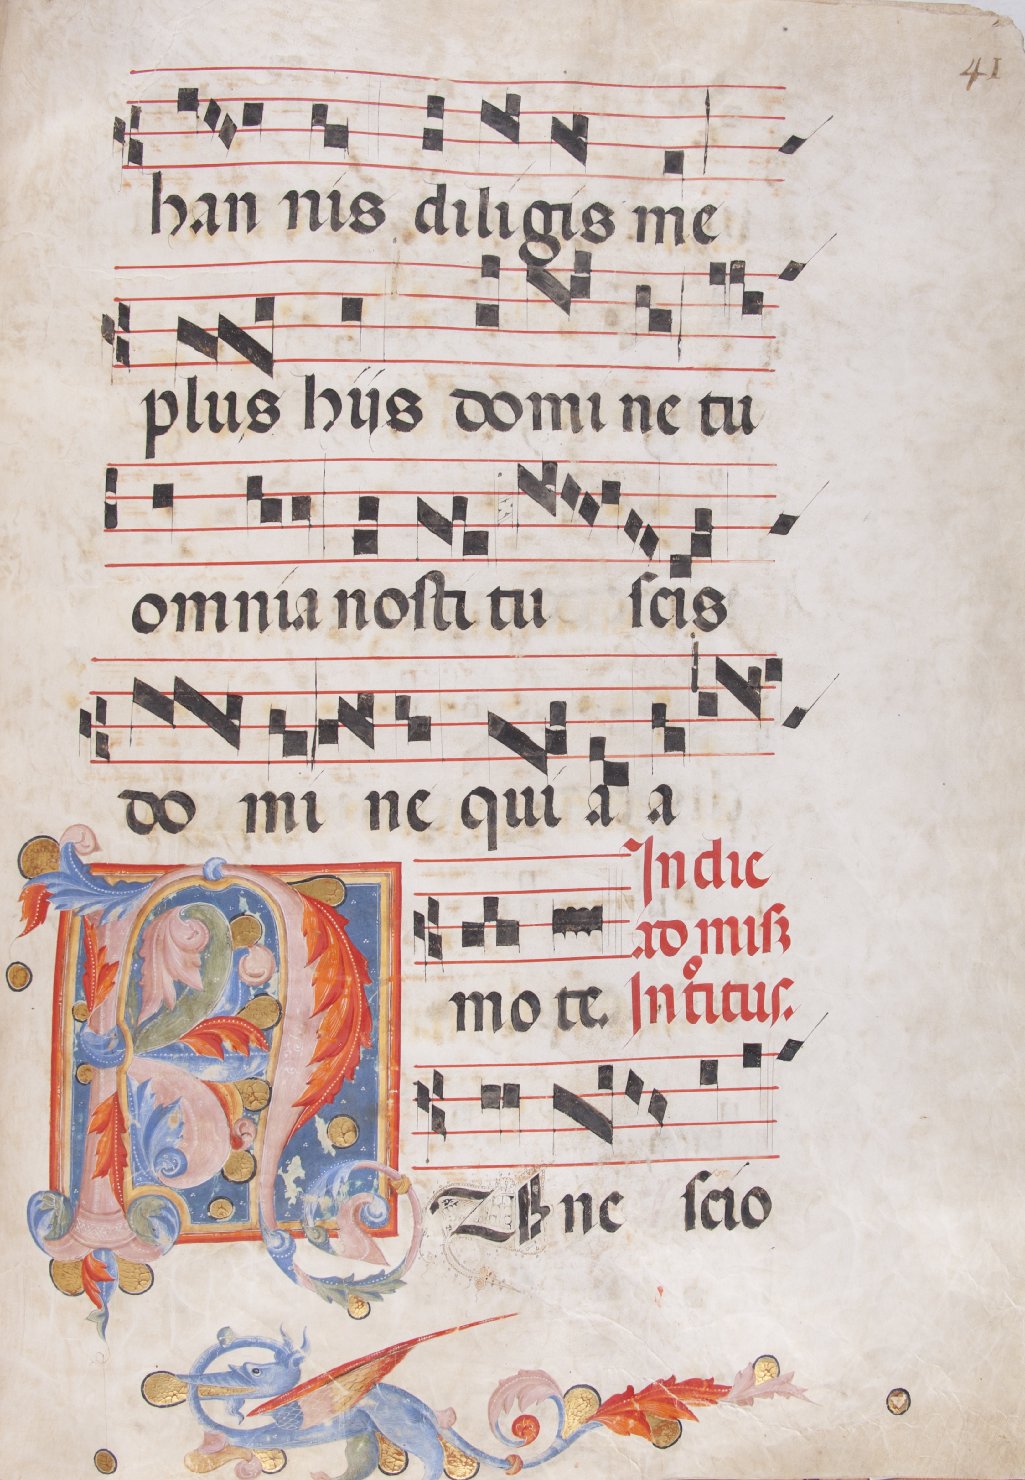 41
han nis diligis me
plus hijs domi ne tu
omnia nosti tu scis
do mi ne qui a a
In die
mo te. ad miss
Introitus.
N Unc scio